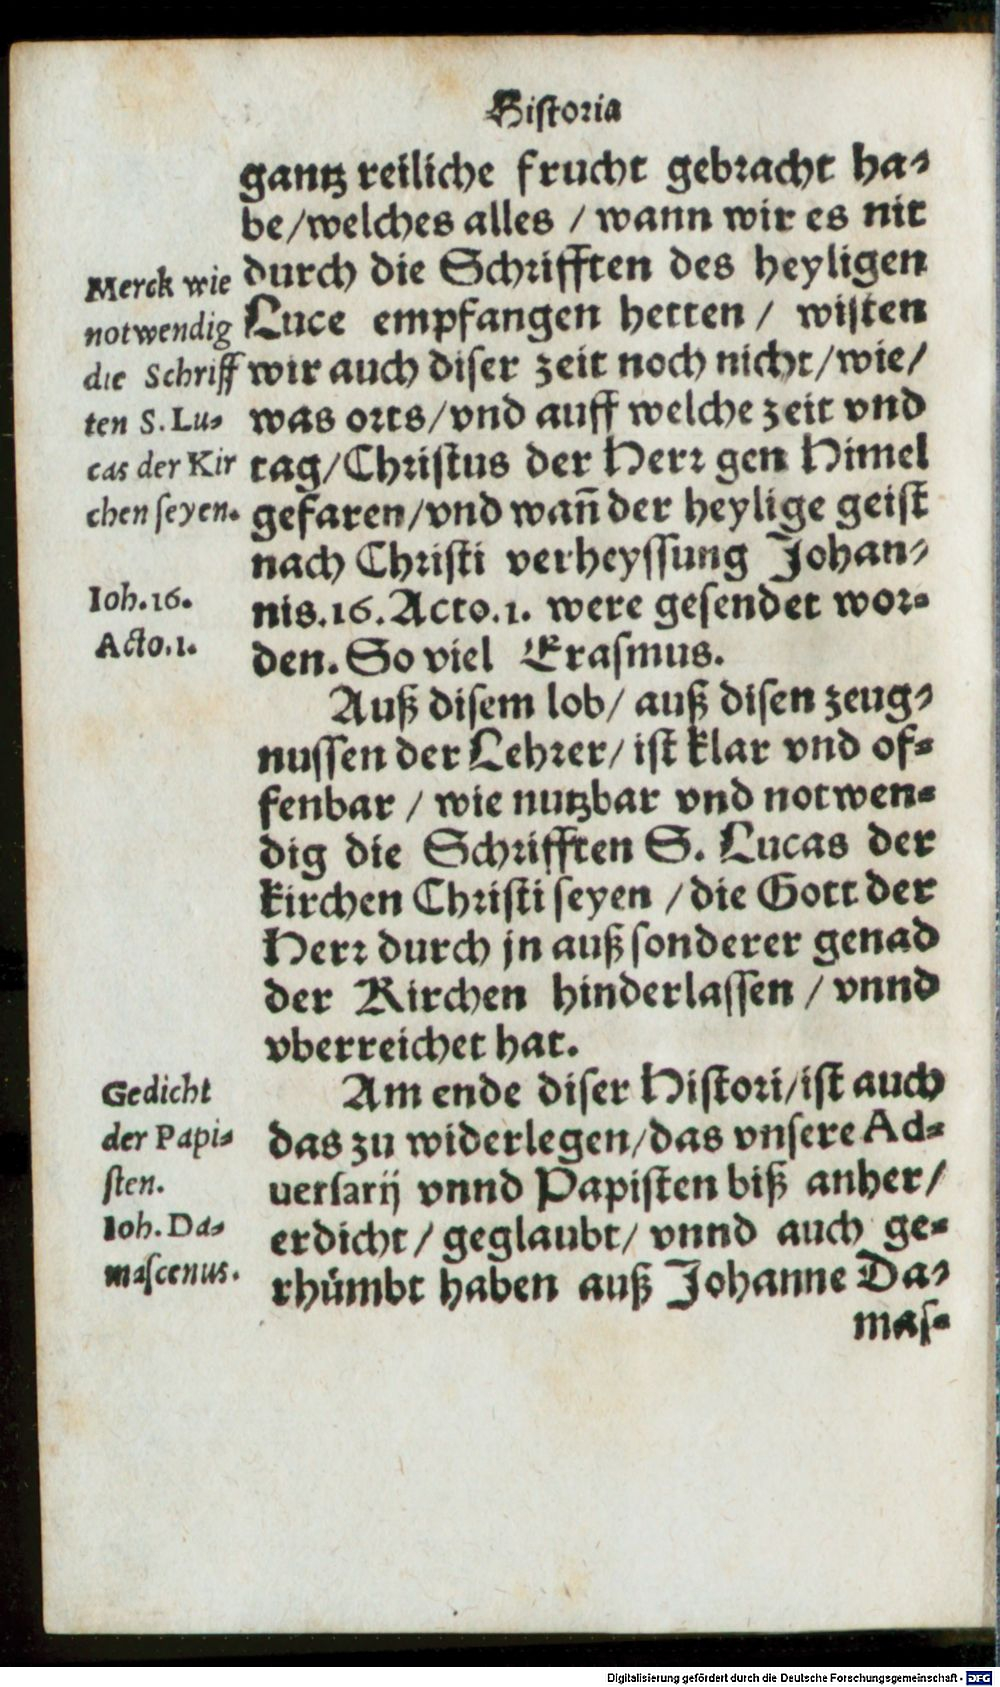 Historia
gantz reiliche frucht gebracht ha-
be/welches alles / wann wir es nit
durch die Schrifften des heyligen
Luce empfangen hetten / wisten
wir auch diser zeit noch nicht/wie/
was orts/vnd auff welche zeit vnd
tag/Christus der Herr gen Himel
gefaren/vnd wañ der heylige geist
nach Christi verheyssung Johan-
nis.16.Acto.1. were gesendet wor-
den. So viel Erasmus.
Auß disem lob/ auß disen zeug-
nussen der Lehrer/ ist klar vnd of-
fenbar / wie nutzbar vnd notwen-
dig die Schrifften S. Lucas der
kirchen Christi seyen / die Gott der
Herr durch jn auß sonderer genad
der Kirchen hinderlassen / vnnd
vberreichet hat.
Am ende diser Histori/ist auch
das zu widerlegen/das vnsere Ad-
uersarij vnnd Papisten biß anher/
erdicht/ geglaubt/ vnnd auch ge-
rhümbt haben auß Johanne Da-
mas-
Merck wie
notwendig
die Schriff
ten S. Lu-
cas der Kir
chen seyen.
Ioh.16.
Acto.1.
Gedicht
der Papi-
sten.
Ioh. Da-
mascenus.
Digitalisierung gefördert durch die Deutsche Forschungsgemeinschaft - DFG